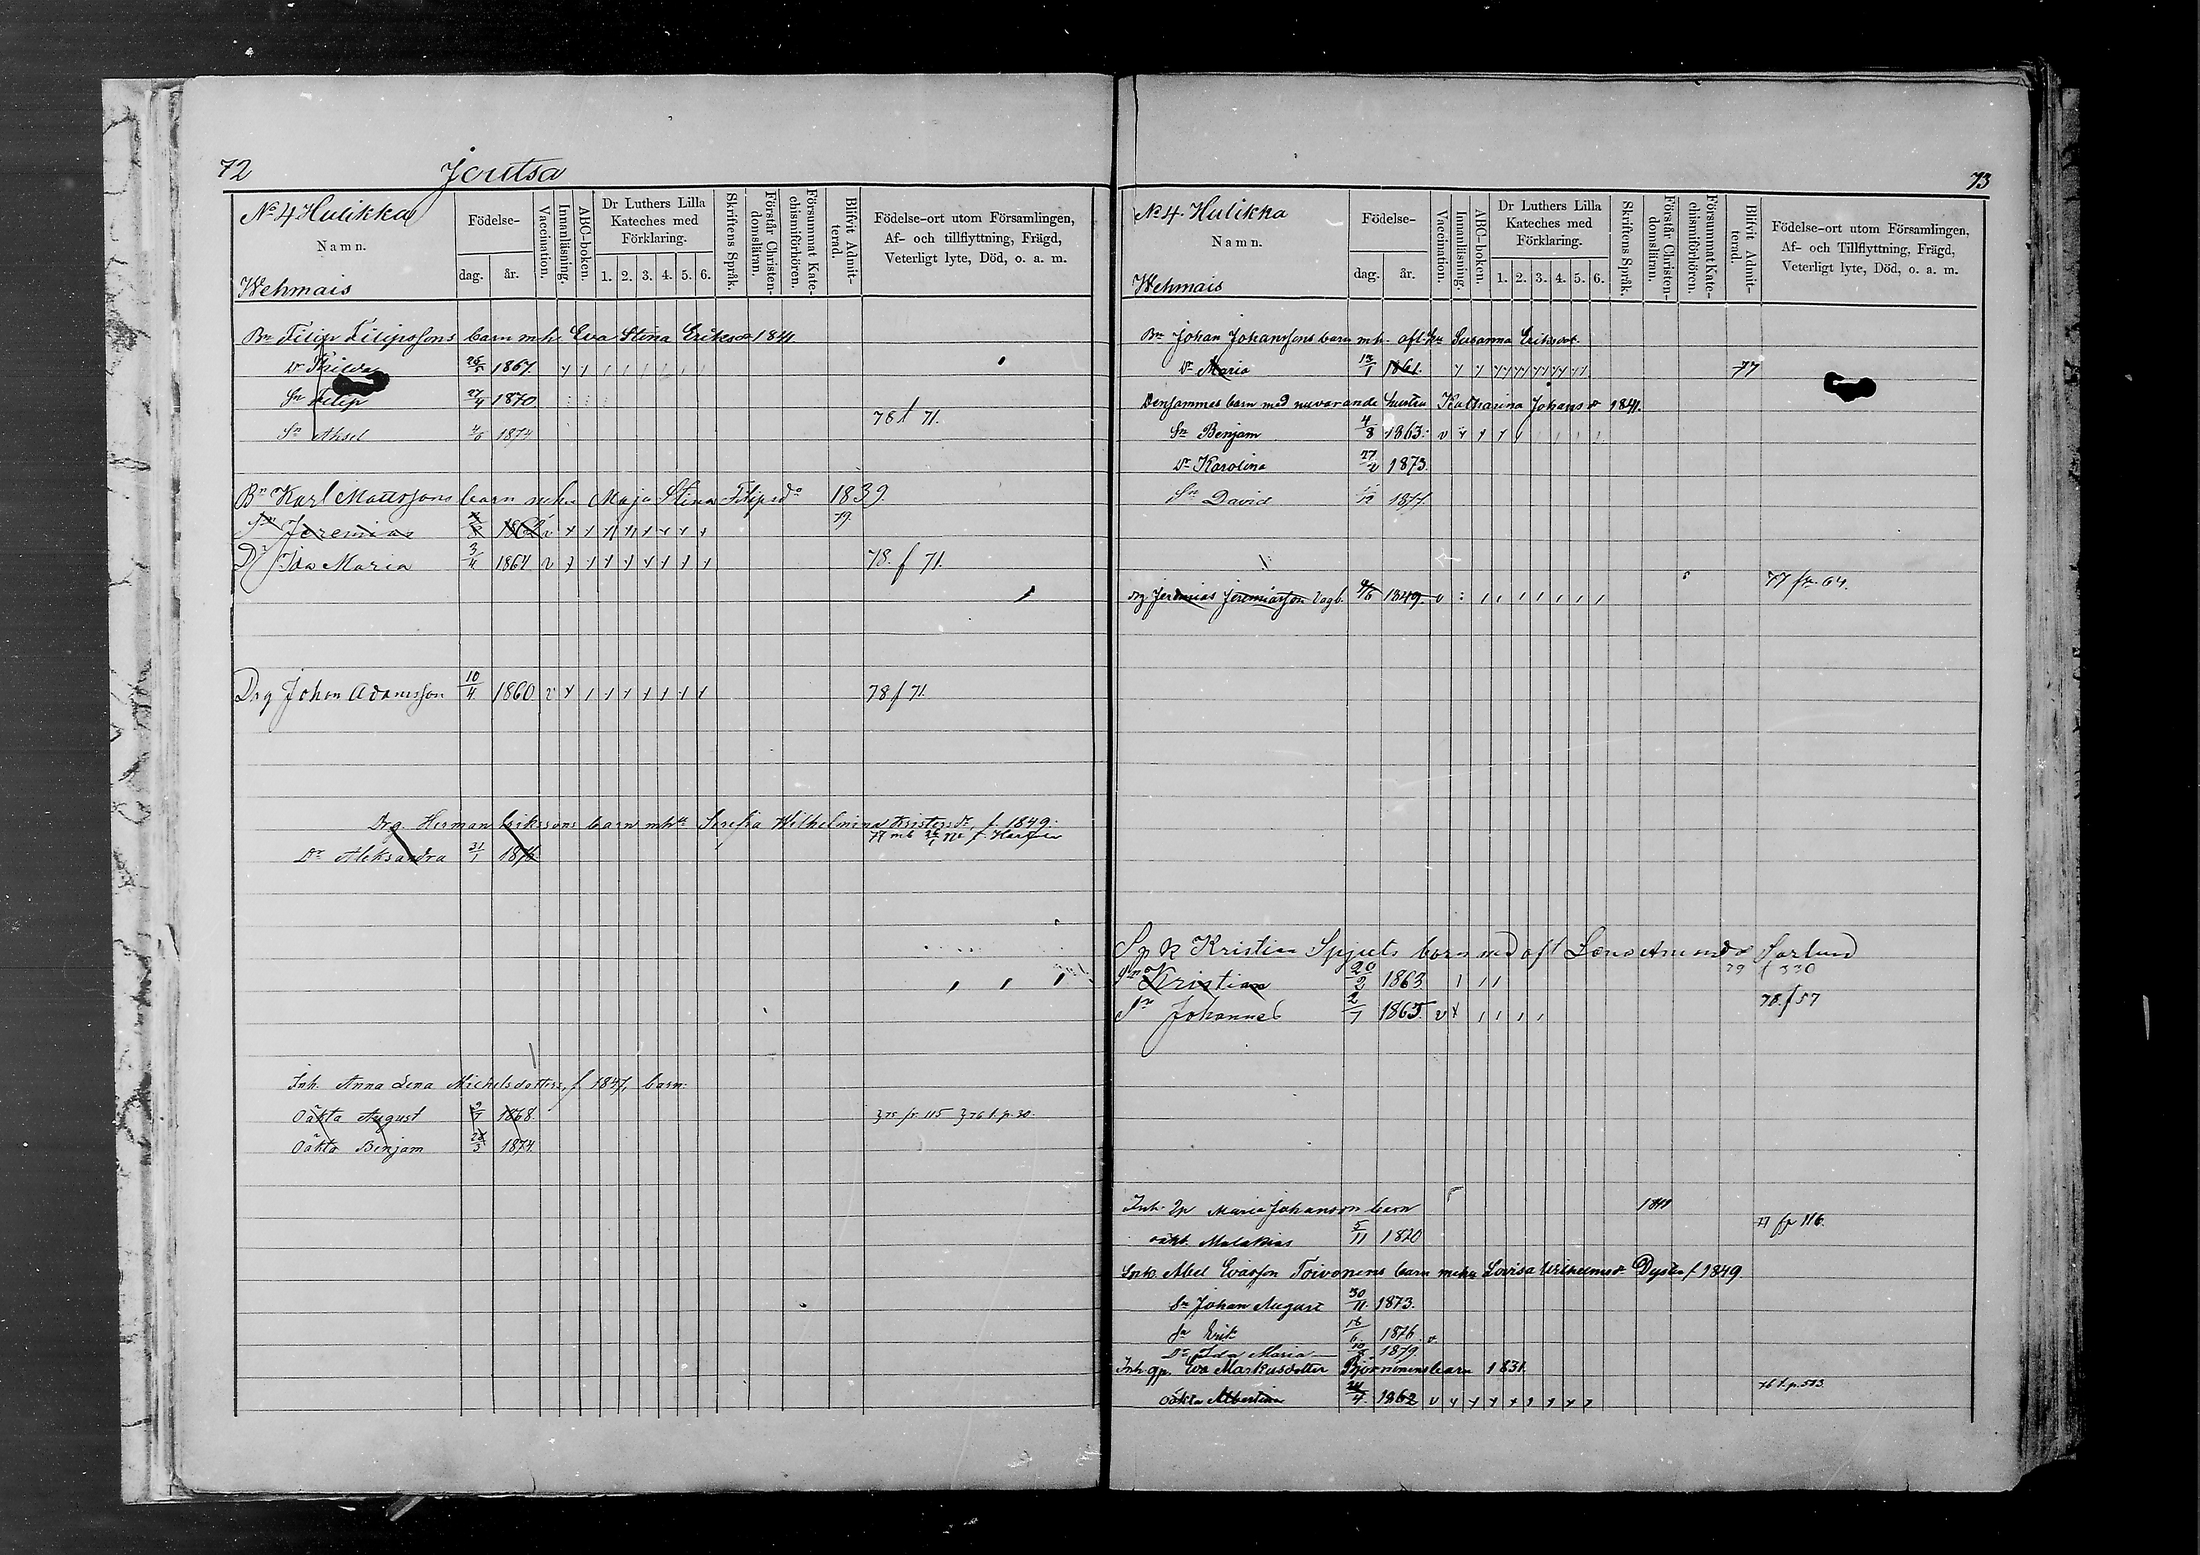 72
Joutsa
No 4 Hulikka
Namn.
Wehmais
Födelse-
dag.
år.
Vaccination.
Innanläsning.
ABC-boken.
Dr Luthers Lilla
Kateches med
Förklaring.
1. 2. 3. 4. 5. 6.
Skriftens Språk.
Förstår Christen-
domsläran.
Försummat Kate-
chismiförhören.
Blifvit Admit-
terad.
Födelse-ort utom Församlingen,
Af- och tillflyttning, Frägd,
Veterligt lyte, Död, o. a. m.
Bn Filip Filipssons barn mh Eva Stina Eriksdr 1841
Dr 1867
Sn Filip 27/4 1870
76 f 71.
Sn Aksel 1874
Bn Karl Mattssons barn mhu Maja Stina Filipsdr 1839.
Sn Jeremias 1862 v 79.
Dr Ida Maria 3/4 1864 v 78. f 71.
Drg Johan Adamsson 10/4 1860 v 78 f 71.
Drg Herman Erikssons barn mhu Serefia Wilhelmina Kristersdr, f. 1849:
Dr Aleksandra 31/1 1876
Inh. Anna Lena Michelsdotters, f 1847, barn:
Oäkta August 1868. 375 fr 115 376 t.p. 30.
Oäkta Benjam 1874.
73
No 4. Hulikka
Namn.
Wehmais
Födelse-
dag.
år.
Vaccination.
Innanläsning.
ABC-boken.
Dr Luthers Lilla
Kateches med
Förklaring.
1. 2. 3. 4. 5. 6.
Skriftens Språk.
Förstår Christen-
domsläran.
Försummat Kate-
chismiförhören.
Blifvit Admit-
terad.
Födelse-ort utom Församlingen,
Af- och Tillflyttning, Frägd,
Veterligt lyte, Död, o. a. m.
Bn Johan Johanssons barn mh. afl. hu Susanna Eriksdot.
Dr Maria 1861. 77
Densammes barn med nuvarande hustru Katharina Johansdr 1841.
Sn Benjam 4/8 1863. v
Dr Karolina 1873.
Sn David 1877
77 fr. 64.
Drg Jeremias Jeremiasson Vagb. 9/6 1849. v
Kristian Spjuts barn med afl Lena Amundsdr Sorlund
79 f 330
Sn Kristian 20/2 1863
78. f 57
Sn Johannes 2/7 1865. v
Inh. Maria Johansson barn
77 fr 116.
oäkt. Malakias 5/11 1870
Inh. Abel Evasson Toivonens barn mhu Lovisa Wilhelmsdr Dyster f. 1849.
Sn Johan August 30/11. 1873.
Sn Erik 16/6. 1876. v.
Dr Ida Maria 1879.
Inh. Eva Markusdotter Björninens barn 1831.
76 t.p. 513.
Oäkta Albertina 24/4. 1862 v